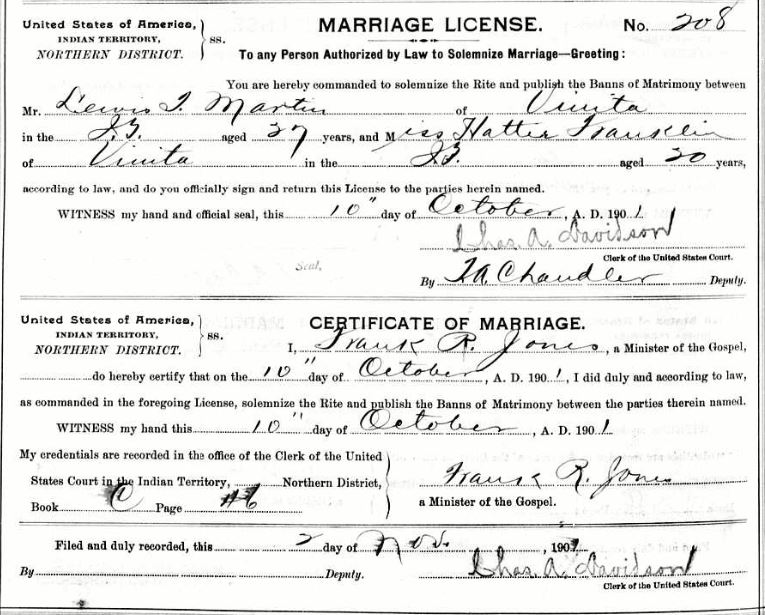 United States of America,
INDIAN TERRITORY,
NORTHERN DISTRICT.
ss.
MARRIAGE LICENSE.
No. 208
To any Person Authorized by Law to Solemnize Marriage—Greeting:
You are hereby commanded to solemnize the Rite and publish the Banns of Matrimony between
Mr. Lewis T. Martin of Vinita
in the I.T. aged 27 years, and Miss Hattie Franklin
of Vinita in the I.T. aged 20 years,
according to law, and do you officially sign and return this License to the parties herein named.
WITNESS my hand and official seal, this 10" day of October, A. D. 1901
Chas. A. Davidson
Seal,
Clerk of the United States Court.
By T.A. Chandler Deputy.
United States of America,
INDIAN TERRITORY,
NORTHERN DISTRICT.
ss.
CERTIFICATE OF MARRIAGE.
I, Frank R. Jones, a Minister of the Gospel,
do hereby certify that on the 10" day of October, A. D. 1901, I did duly and according to law,
as commanded in the foregoing License, solemnize the Rite and publish the Banns of Matrimony between the parties therein named.
WITNESS my hand this 10" day of October, A. D. 1901
My credentials are recorded in the office of the Clerk of the United
States Court in the Indian Territory, Northern District,
Book C Page
Frank R. Jones
a Minister of the Gospel.
Filed and duly recorded, this 2 day of Nov., 1901
Chas. A. Davidson
By Deputy.
Clerk of the United States Court.